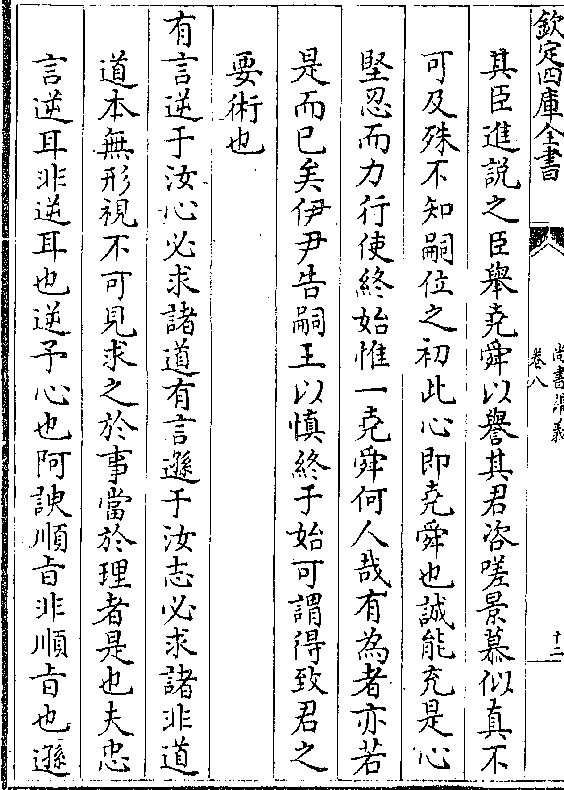 欽定四庫全書
尚書講義
卷八
十二
其臣進說之臣舉堯舜以譽其君咨嗟景慕似真不
可及殊不知嗣位之初此心即堯舜也誠能充是心
堅忍而力行使終始惟一堯舜何人哉有為者亦若
是而已矣伊尹告嗣王以慎終于始可謂得致君之
要術也
有言逆于汝心必求諸道有言遜于汝志必求諸非道
道本無形視不可見求之於事當於理者是也夫忠
言逆耳非逆耳也逆予心也阿諛順㫖非順㫖也遜